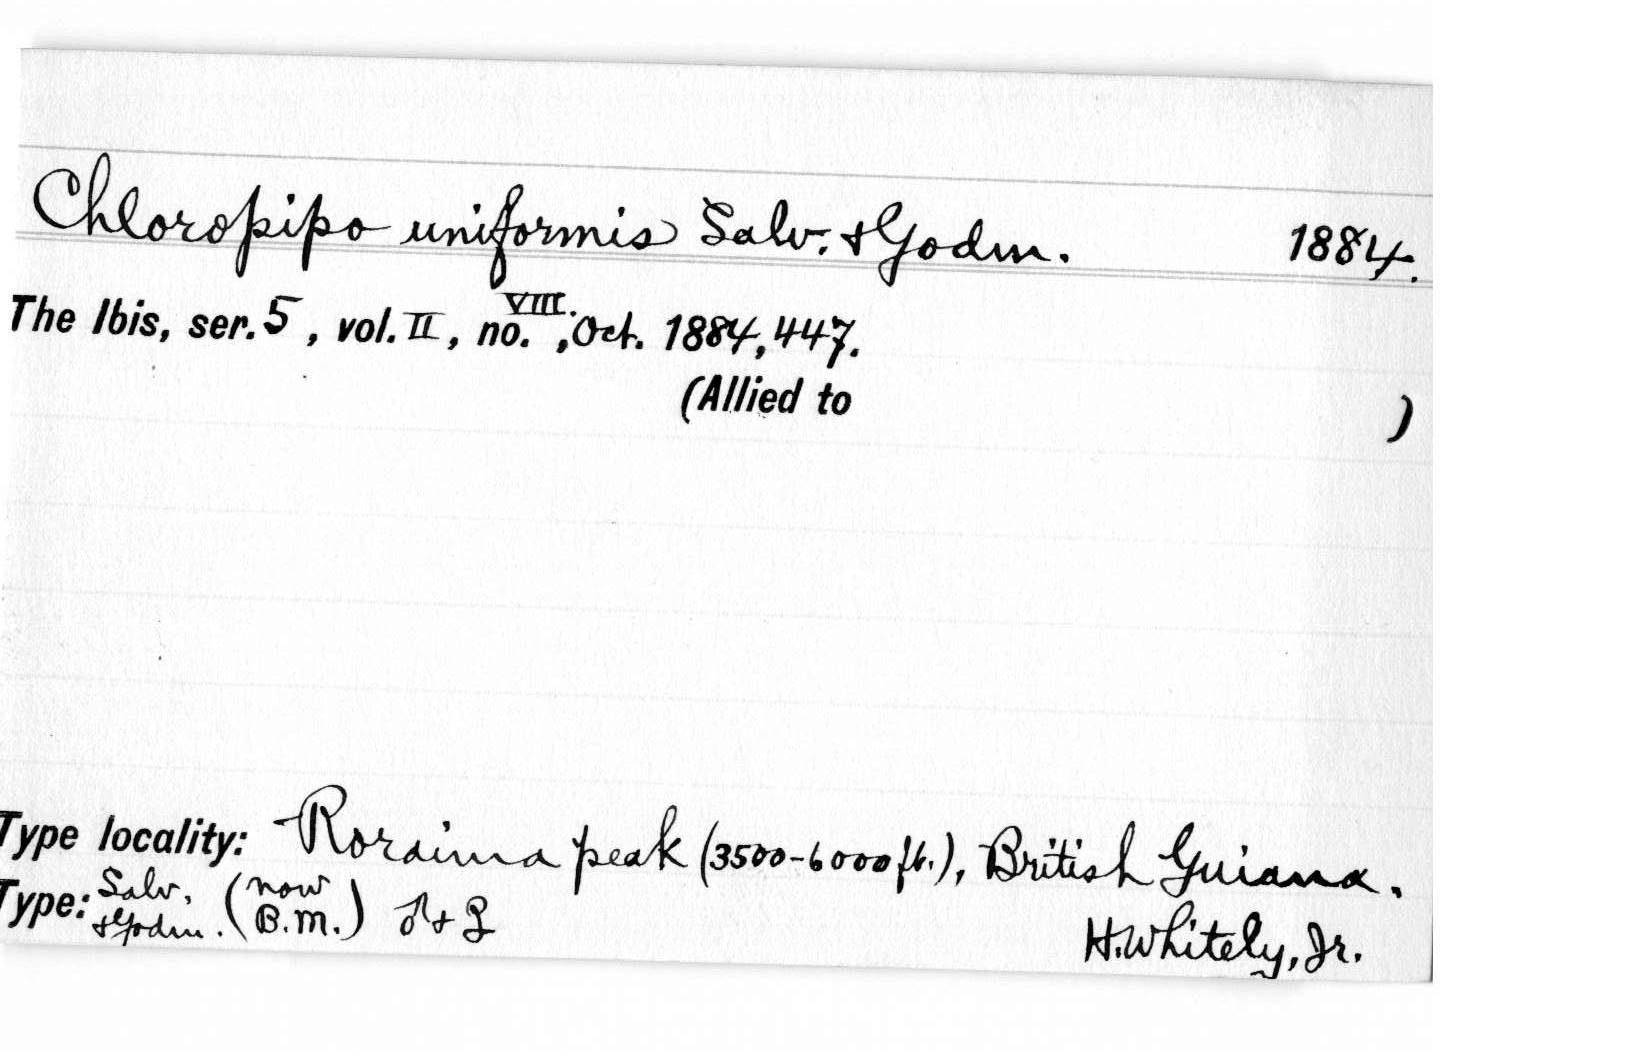 Chloropipo uniformis Salv. & Godm. 1884.
The Ibis, ser. 5, vol. II, no. VIII., Oct. 1884, 447.
(Allied to )
Type locality: Roraima peak (3500-6000 ft.), British Guiana.
Type: Salv. & Godm. (now B.M.) ♂ + ♀
H. Whitely, Jr.